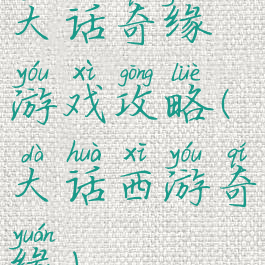 大话奇缘
yóu xì gōng lüè
游戏攻略(
dà huà xī yóu qí
大话西游奇
yuán
缘)